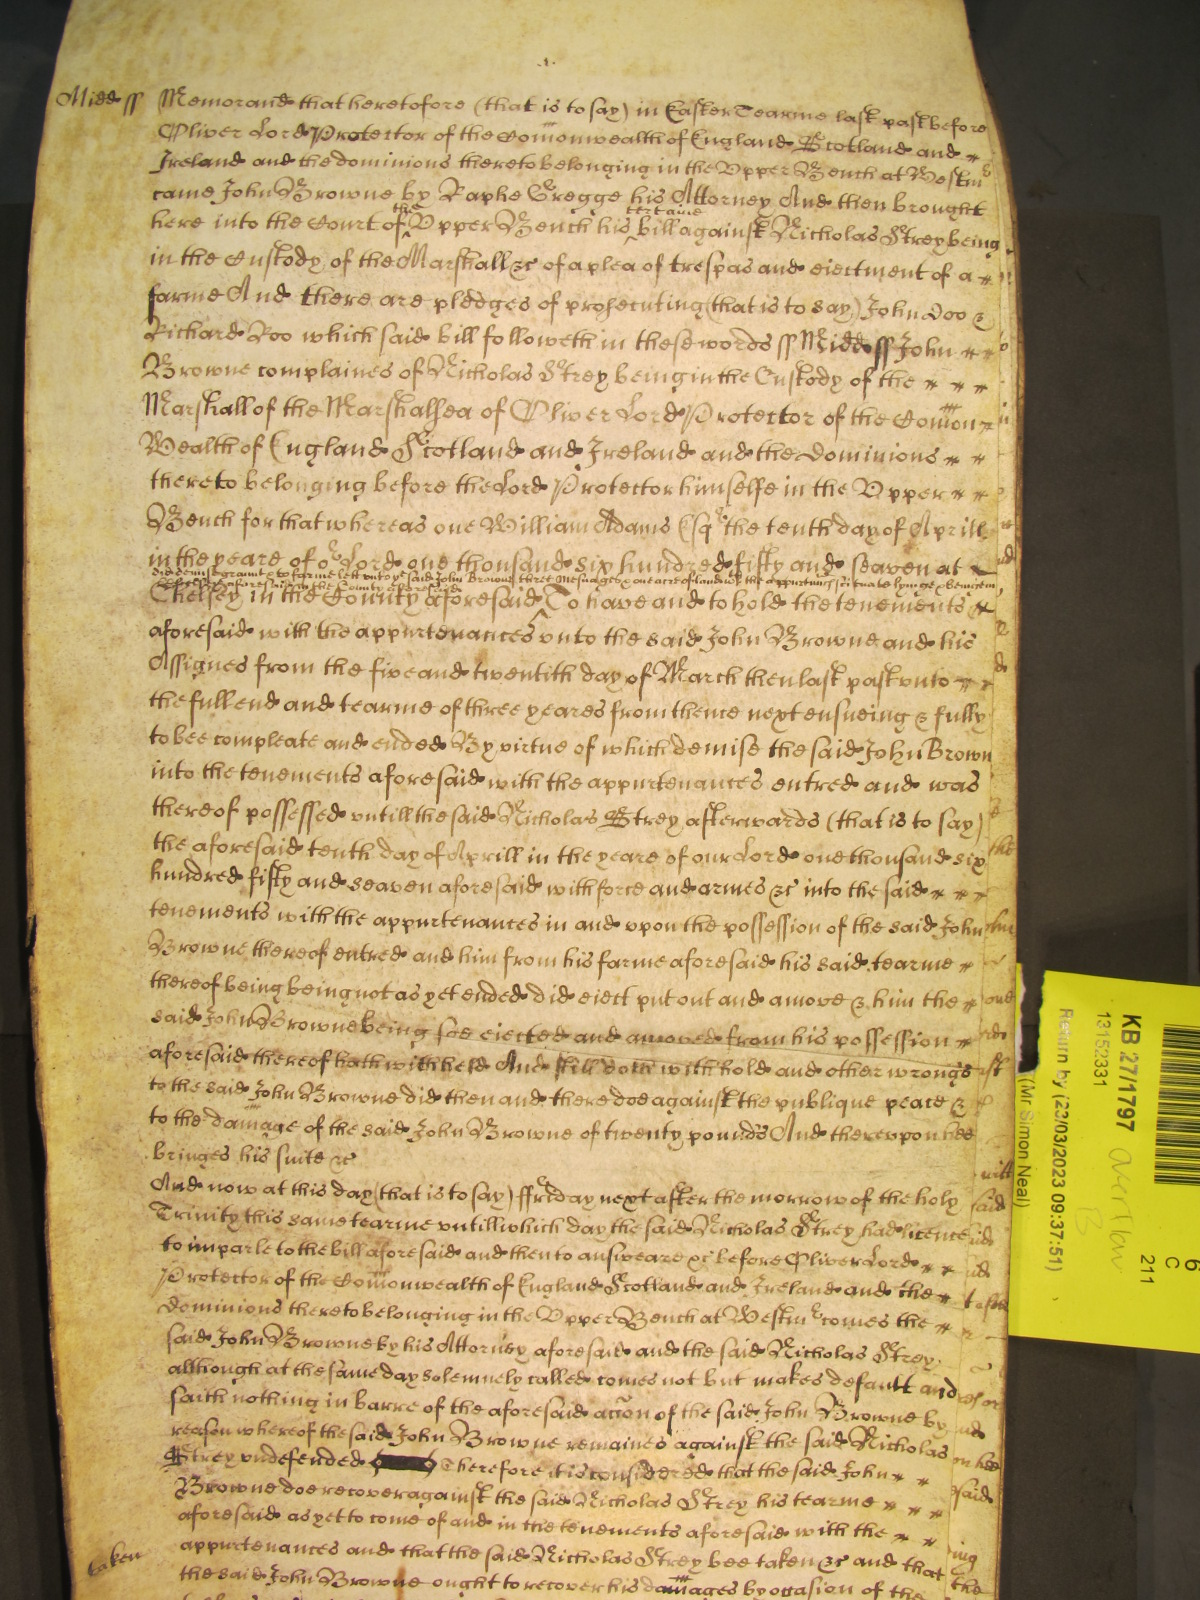 Midd ss Memorand that heretofore (that is to say) in Easter Tearme last past before
Oliver Lord Protector of the Comonwealth of England Scotland and
Ireland and the dominions thereto belonging in the Upper Bench at Westmr
came John Browne by Raphe Gregge his Attorney And then brought
here into the Court of ^the Upper Bench his ^certaine bill against Nicholas Strey being
in the Custody of the Marshall &c of a plea of trespas and eiectment of a
farme And there are pledges of prosecuting (that is to say) John Doo &
Richard Roo which said bill followeth in these words ss Midd ss John
Browne complaines of Nicholas Strey being in the Custody of the
Marshall of the Marshalsea of Oliver Lord Protector of the Comon
Wealth of England Scotland and Ireland and the dominions
thereto belonging before the Lord Protector himselfe in the Upper
Bench for that whereas one William Adams Esqr the tenth day of Aprill
in the yeare of or Lord one thousand six hundred fifty and seaven at
did demise graunt & to farme lett unto ye said John Browne three mesuages & one acre of land wth the appurtenncs scituate lyinge & beinge in
Chelsey aforesaid in the County aforesaid
Chelsey in the County aforesaid To have and to hold the tenements
aforesaid with the appurtenances ^ unto the said John Browne and his
Assignes from the five and twentith day of March then last past unto
the full end and tearme of three yeares from thence next ensueing & fully
to bee compleate and ended By virtue of which demise the said John Brown
into the tenements aforesaid with the appurtenances entred and was
thereof possessed untill the said Nicholas Strey afterwards (that is to say)
the aforesaid tenth day of Aprill in the yeare of our Lord one thousand six
hundred fifty and seaven aforesaid with force and armes &c into the said
tenements with the appurtenances in and upon the possession of the said John
Browne thereof entred and him from his farme aforesaid his said tearme
thereof being being not as yet ended did eiect put out and amove & him the
said John Browne being soe eiected and amoved from his possession
aforesaid thereof hath withheld And still doth withhold and other wrongs
to the said John Browne did then and there doe against the publique peace &
to the damage of the said John Browne of twenty pounds And thereupon hee
bringes his suite &c
And now at this day (that is to say) ffryday next after the morrow of the holy
Trinity this same tearme untill which day the said Nicholas Strey had licence
to imparle to the bill aforesaid and then to answeare &c before Oliver Lord
Protector of the Comonwealth of England Scotland and Ireland and the
dominions thereto belonging in the Upper Bench at Westmr comes the
said John Browne by his Attorney aforesaid and the said Nicholas Strey
although at the same day solemnely called comes not but makes default and
saith nothing in barre of the aforesaid accon of the said John Browne by
reason whereof the said John Browne remaines against the said Nicholas
Strey undefended Therefore it is considered that the said John
Browne doe recover against the said Nicholas Strey his tearme
aforesaid as yet to come of and in the tenements aforesaid with the
appurtenances and that the said Nicholas Strey bee taken &c and that
taken
the said John Browne ought to recover his damages by occasion of the
KB 27/1797
13152331
Return by (23/03/2023 09:37:51)
(Mr Simon Neal)
6
C
211